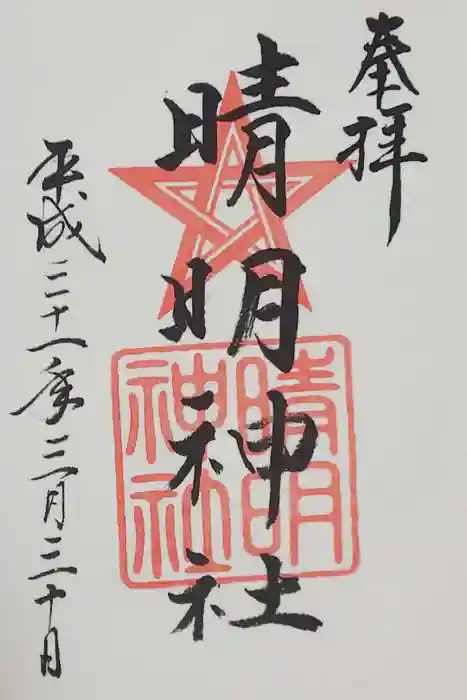 奉拝
晴明神社
晴明
神社
平成三十一年三月三十日